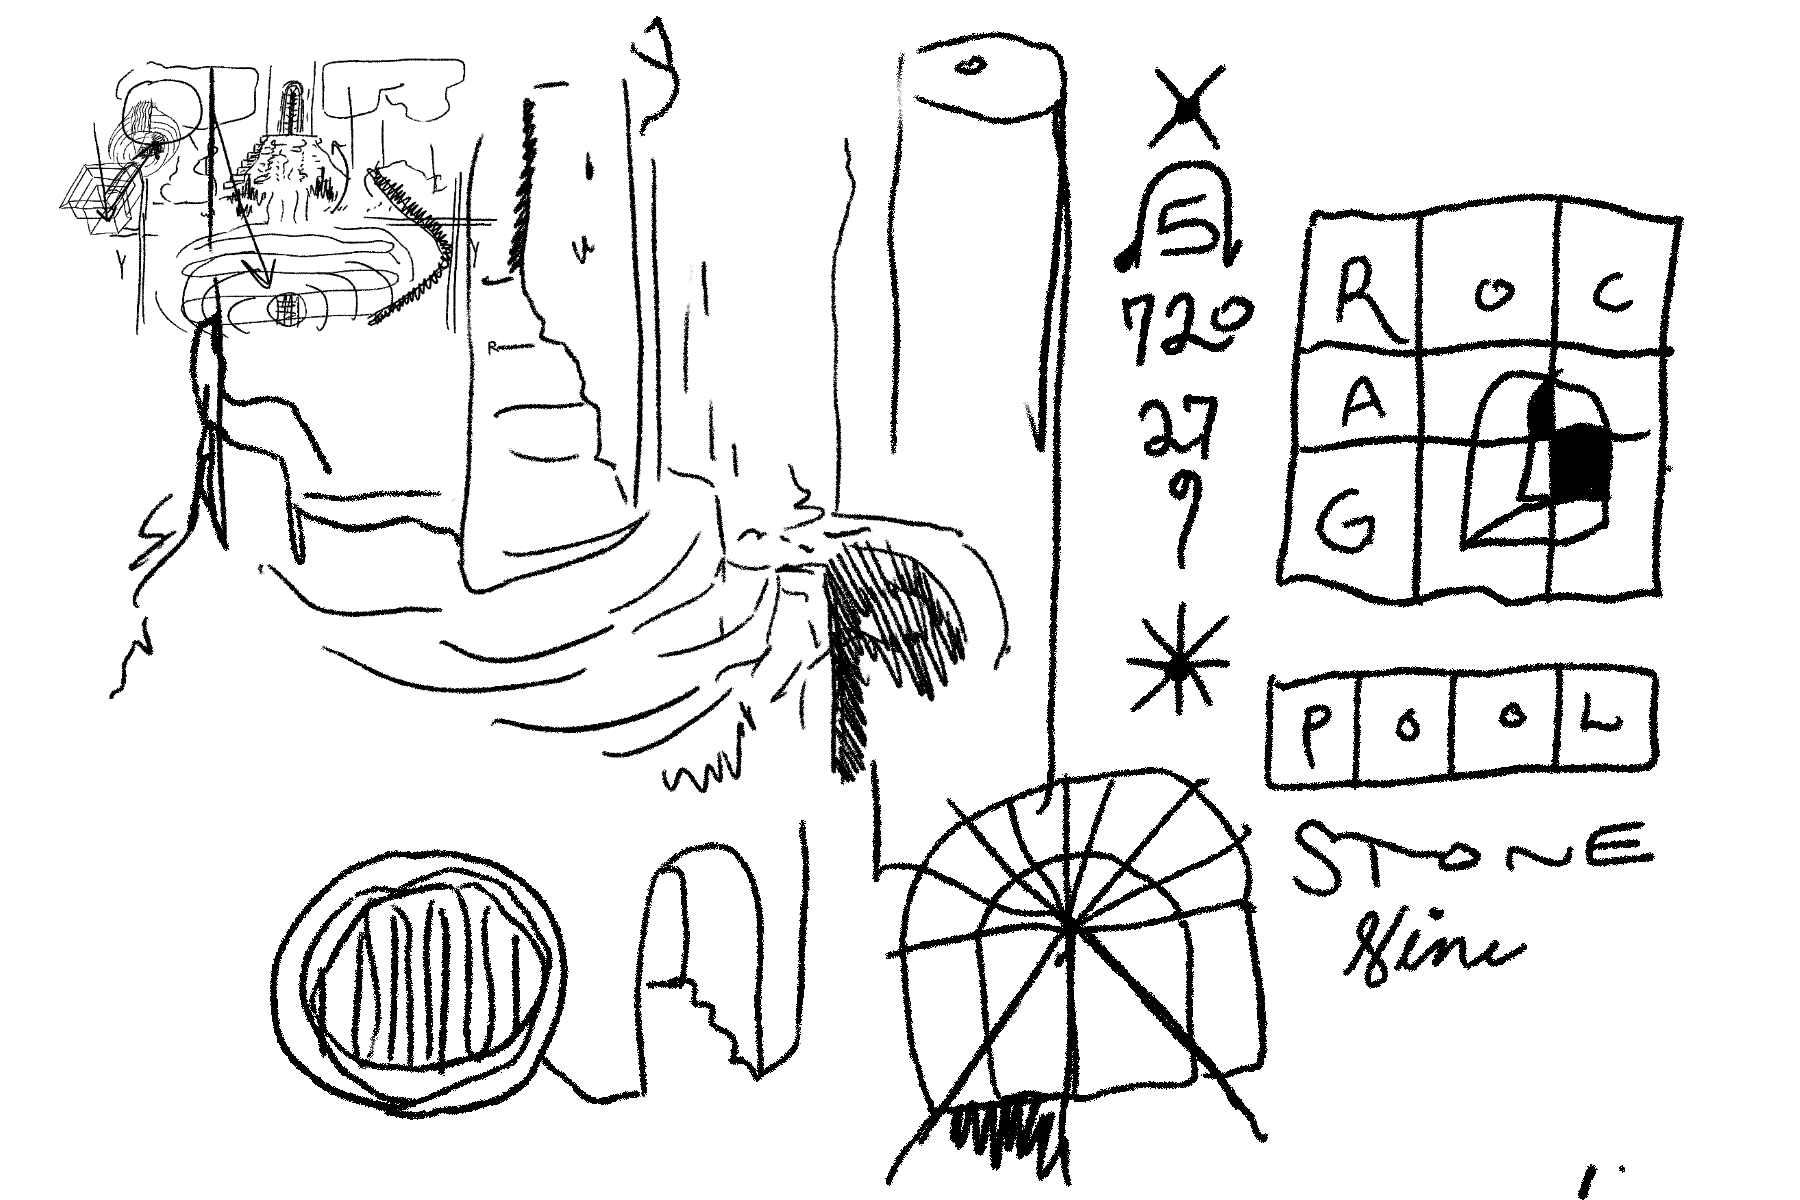 R
5
720
27
9
R O C
A
G
P O O L
STONE